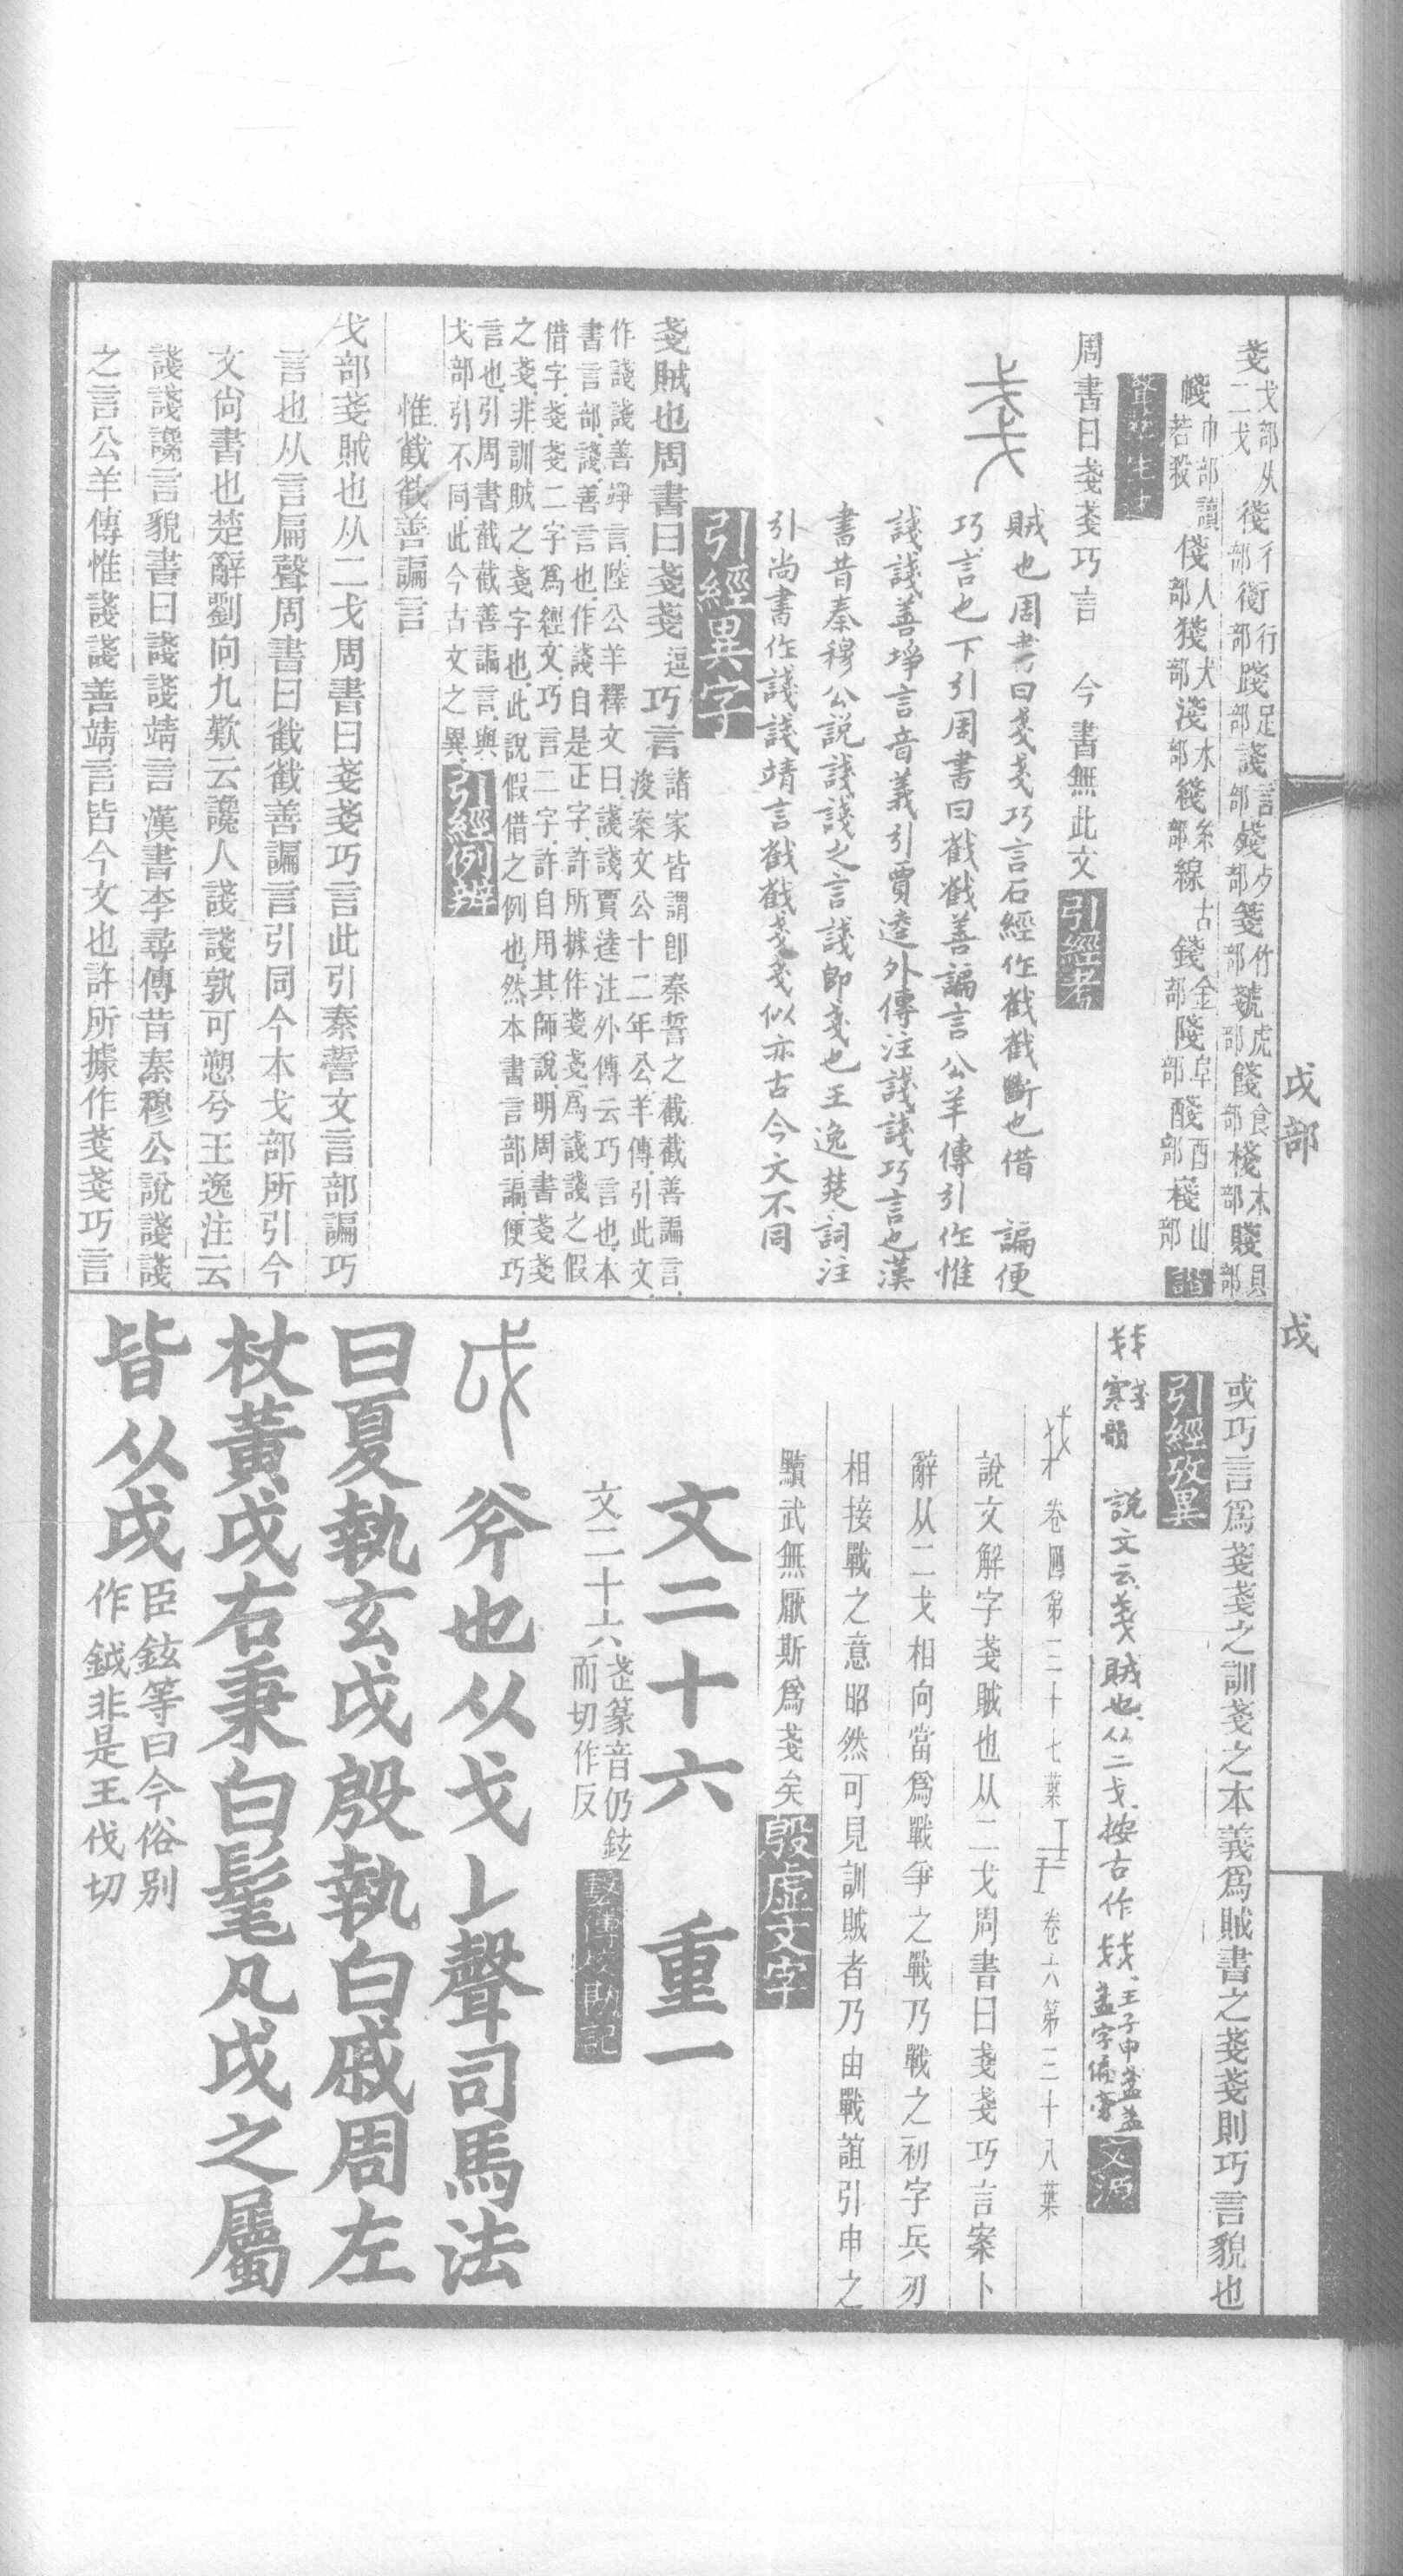 戔戈部从二戈 後行部 衝行部 踐足部 諓言部 殘歺部 箋竹部 虦虎部 餞食部 棧木部 賤貝部
幭巾部讀若殺 俴人部 㺝犬部 淺水部 綫糸部 線古 錢金部 陖阜部 醆酉部 嶘山部 諧
聲譜
周書曰戔戔巧言　今書無此文 引經考
賊也周書曰戔戔巧言石經作截截斷也借　諞便
巧言也下引周書曰截截善諞言公羊傳引作惟
諓諓善竫言音義引賈逵外傳注諓諓巧言也漢
書昔秦穆公說諓諓之言諓即戔也王逸楚詞注
引尚書作諓諓靖言截截戔戔似亦古今文不同
引經異字
戔賊也周書曰戔戔逗巧言諸家皆謂卽秦誓之截截善諞言
浚案文公十二年公羊傳引此文
作諓諓善竫言陸公羊釋文曰諓諓賈逵注外傳云巧言也本
書言部諓善言也作諓自是正字許所據作戔戔爲諓諓之假
借字戔戔二字爲經文巧言二字許自用其師說明周書戔戔
之戔非訓賊之戔字也此說假借之例也然本書言部諞便巧
言也引周書截截善諞言與
戈部引不同此今古文之異 引經例辨
惟截截善諞言
戈部戔賊也从二戈周書曰戔戔巧言此引秦誓文言部諞巧
言也从言扁聲周書曰截截善諞言引同今本戈部所引今
文尚書也楚辭劉向九歎云讒人諓諓孰可愬兮王逸注云
諓諓讒言貌書曰諓諓靖言漢書李尋傳昔秦穆公說諓諓
之言公羊傳惟諓諓善靖言皆今文也許所據作戔戔巧言
戉部　戉
或巧言爲戔戔之訓戔之本義爲賊書之戔戔則巧言貌也
引經攷異
戔寒韻　說文云戔賊也从二戈按古作戔王子申盞盂盞字偏旁 文源
卷四第三十七葉　卷六第三十八葉
說文解字戔賊也从二戈周書曰戔戔巧言案卜
辭从二戈相向當爲戰爭之戰乃戰之初字兵刃
相接戰之意昭然可見訓賊者乃由戰誼引申之
黷武無厭斯爲戔矣 殷虛文字
文二十六　重一
文二十六 而切作反
戉 斧也从戈𠄌聲司馬法
曰夏執玄戉殷執白戚周左
杖黃戉右秉白髦凡戉之屬
皆从戉臣鉉等曰今俗別
作鉞非是王伐切